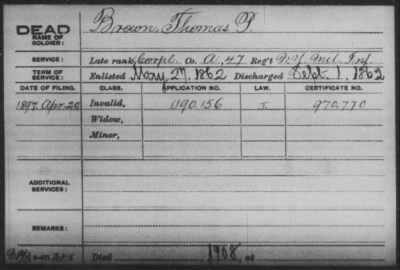 DEAD
NAME OF SOLDIER:
Brown, Thomas P.
SERVICE:
Late rank, Corpl. Co. A, 47 Reg't N.Y. Mil. Inf.
TERM OF SERVICE:
Enlisted May 27, 1862 Discharged Sept. 1, 1862
DATE OF FILING. CLASS. APPLICATION NO. LAW. CERTIFICATE NO.
1897 Apr. 28 Invalid, 1190.156 970.770
Widow,
Minor,
ADDITIONAL SERVICES:
REMARKS:
Died 1908, at